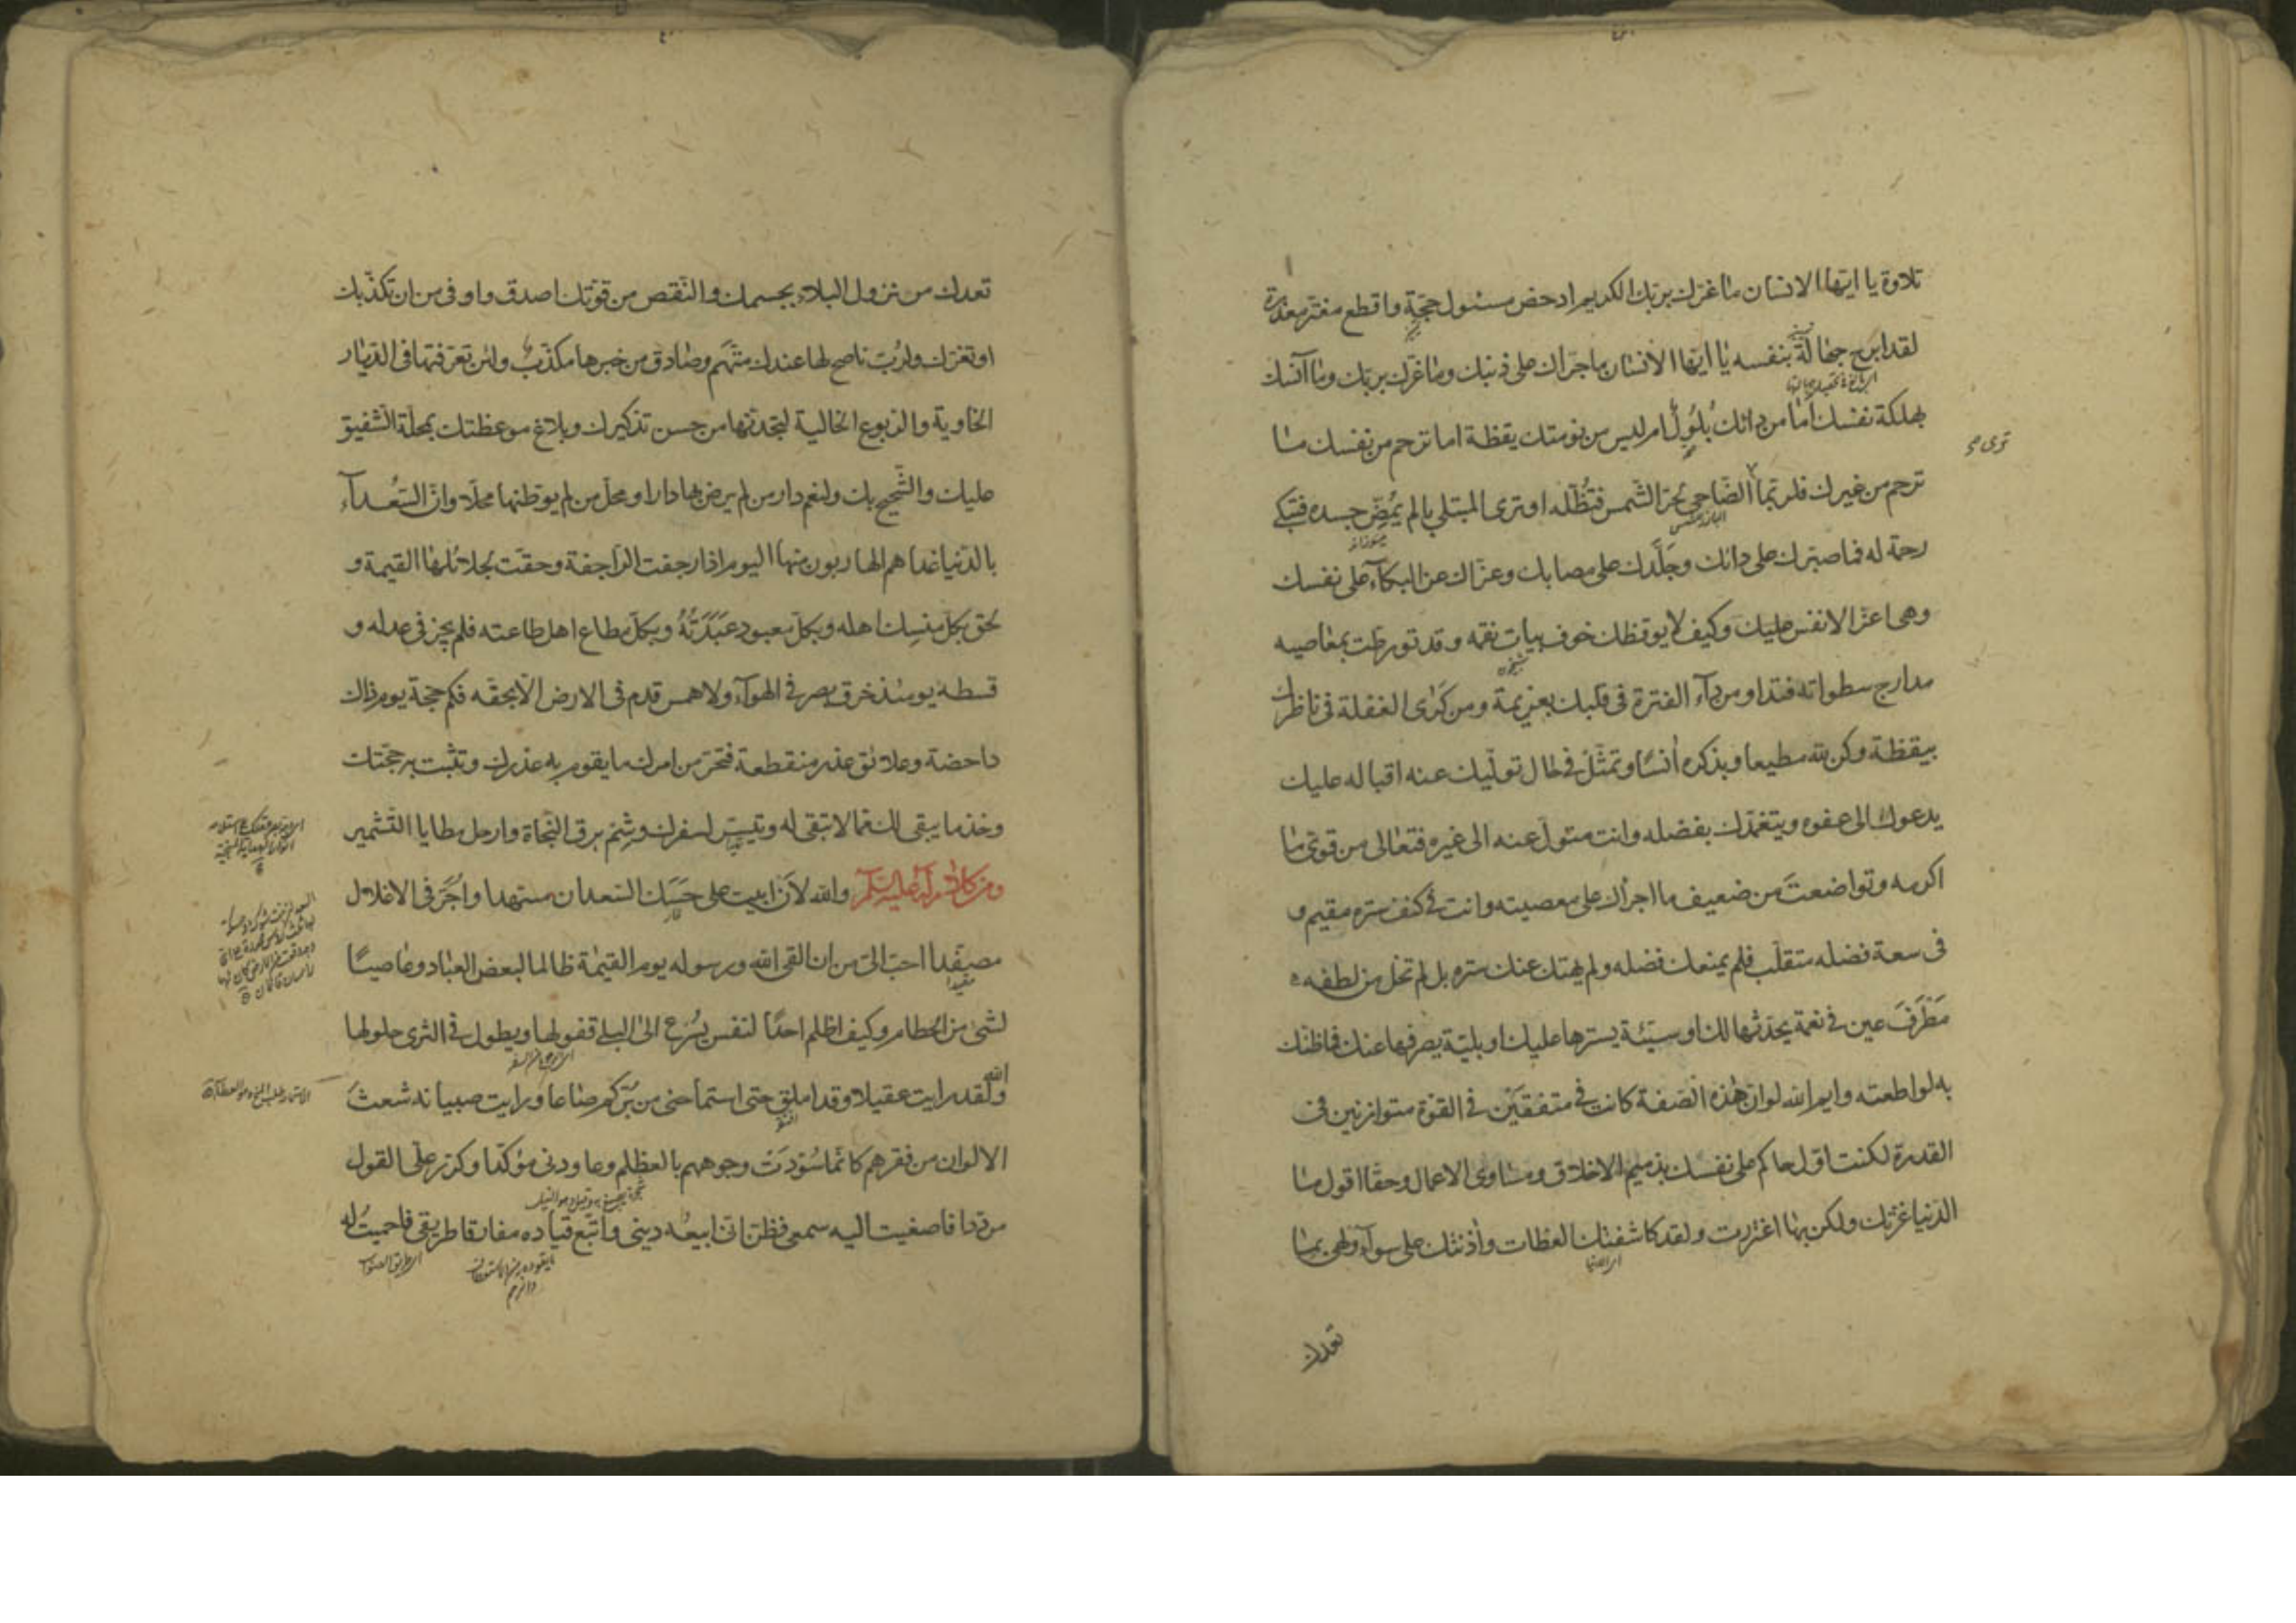 تلاوة يا ايّها الانسان ما غرّك بربّك الكريم ادحض مسئول حجّة واقطع مغترّ معذرة
لقد ابرح جهالة بنفسه يا ايّها الانسان ما جرّاك على ذنبك وما غرّك بربّك وما آنسك
بهلكة نفسك اما من دائك بُلُول ام ليس من نومتك يقظة اما ترحم من نفسك ما
ترحم من غيرك فلربّما الضّاحى لحرّ الشّمس فتُظّله او ترى المبتلى بالم يُمِضّ جسده فتبكى
رحمة له فما صبّرك على دائك وجَلّدك على مصابك وعزّاك عن البكآء على نفسك
وهى اعزّ الانفس عليك وكيف لا يوقظك خوف بيات نقمه وقد تورطت بمعاصيه
مدارج سطواته فتداو من دآء الفترة فى قلبك بعزيمة ومن كَرَى الغفلة فى ناظرك
بيقظة وكن لله مطيعا وبذكره اُنسًا وتمثّل فى حال تولّيك عنه اقباله عليك
يدعوك الى عفوه ويتغمّدك بفضله وانت متولّ عنه الى غيره فتعالى من قوىّ ما
اكرمه وتواضعتَ من ضعيف ما اجراك على معصيته وانت فى كنف ستره مقيم و
فى سعة فضله متقلّب فلم يمنعك فضله ولم يهتك عنك ستره بل لم تخل من لطفه
مَطرَفَ عين فى نعمة يحدثها لك او سيّئة يسترها عليك او بليّة يصرفها عنك فما ظنّك
به لو اطعته وايم الله لو ان هذه الصّفة كانت فى متفقَيْن فى القوّة متوازنين فى
القدرة لكنت اوّل حاكم على نفسك بذميم الاخلاق ومساوى الاعمال وحقّا اقول ما
الدّنيا غرّتك ولكن بها اغتررت ولقد كاشفتك العظات واٰذنتك على سوآء ولهى بما
تعدك
تعدك من نزول البلاء بجسمك والنّقص من قوّتك اصدق واوفى من ان تكذّبك
او تغرّك ولربّ ناصح لها عندك متّهم وصادق من خبرها مكذّب ولئن تعرّفتها فى الدّيار
الخاوية والرّبوع الخالية لتجدنّها من حسن تذكيرك وبلاغ موعظتك بمحلّة الشّفيق
عليك والشّحيح بك ولنعم دار من لم يرض بها دارا ومحلّ من لم يوطّنها محلّا وانّ السّعُدآء
بالدّنيا غدا هم الهاربون منها اليوم اذا رجفت الرّاجفة وحقّت بجلائلها القيمة و
لحق بكلّ منسك اهله وبكلّ معبود عَبَدَتُهُ وبكلّ مطاع اهل طاعته فلم يجز فى عدله و
قسطه يومئذ خرق بصر فى الهوآء ولا همس قدم فى الارض الّا بحقّه فكم حجّة يوم ذاك
داحضة وعلائق عذر منقطعة فتحرّ من امرك ما يقوم به عذرك وتثبت به حجّتك
وخذ ما يبقى لك مما لا تبقى له وتيسّر لسفرك وشِمْ برق النّجاة وارحل مطايا التّشمير
ومن كلام له عليه السّلم والله لأن ابيت على حَسَك السّعدان مسهّدا واُجَرّ فى الاغلال
مصفّدا احبّ الىّ من ان القى الله ورسوله يوم القيمة ظالما لبعض العباد وغاصبًا
لشئ من الحطام وكيف اظلم احدًا لنفس يُسْرع الى البلى قفولها ويطول فى الثرى حلولها
والله لقد رايت عقيلا وقد املق حتى استماحنى من بُرّكم صاعا ورايت صبيانه شعث
الالوان من فقرهم كانّما سُوّدَتْ وجوههم بالعظلم وعاودنى مؤكّدا وكرّر علىّ القول
مردّدا فاصغيت اليه سمعى فظنّ انّى ابيعُه دينى واتّبع قياده مفارقا طريقى فاحميتُ له